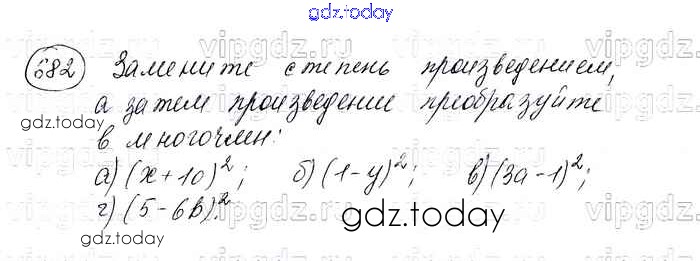 gdz.today
682 Замените степень произведением,
а затем произведение преобразуйте
gdz.today
в многочлен:
а) (x+10)²; б) (1-y)²; в) (3a-1)²;
г) (5-6b)².
gdz.today
gdz.today
vipgdz.ru